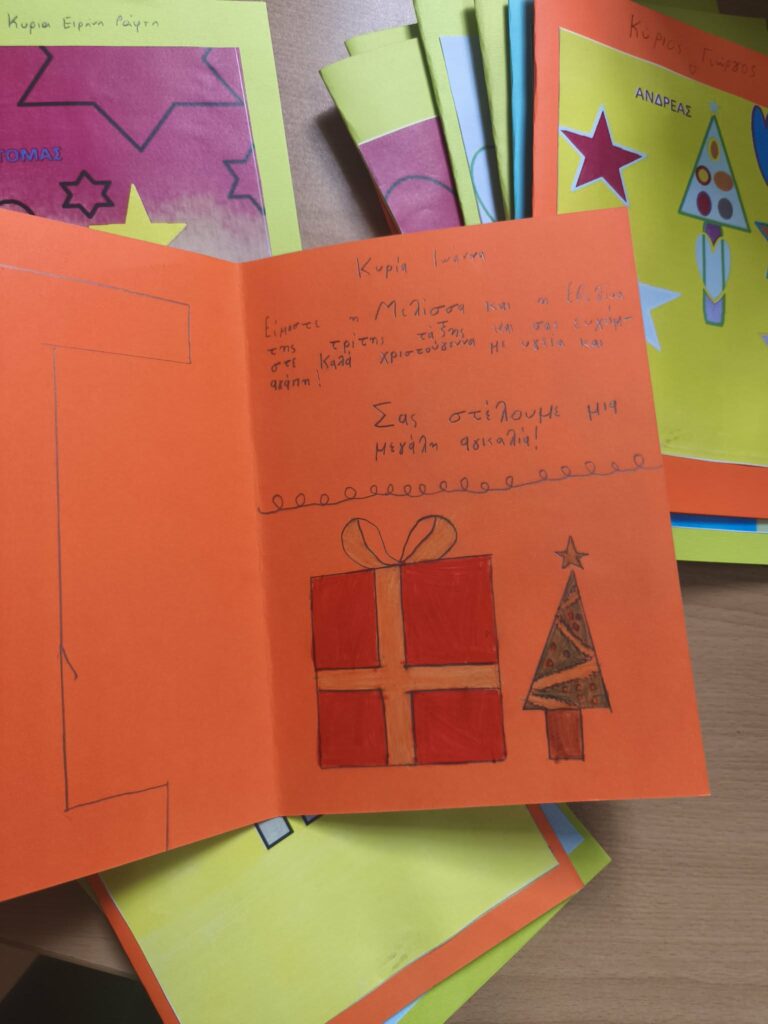 Κυρια Ειρήνη Ράφτη
ΤΟΜΑΣ
Κύριος Γιώργος
ΑΝΔΡΕΑΣ
Κυρία Ιωάννα
Είμαστε η Μελίσσα και η
της τρίτης τάξης και σας ευχόμα-
στε Καλά χριστούγεννα με υγεία και
αγάπη!
Σας στέλουμε μια
μεγάλη αγκαλιά!